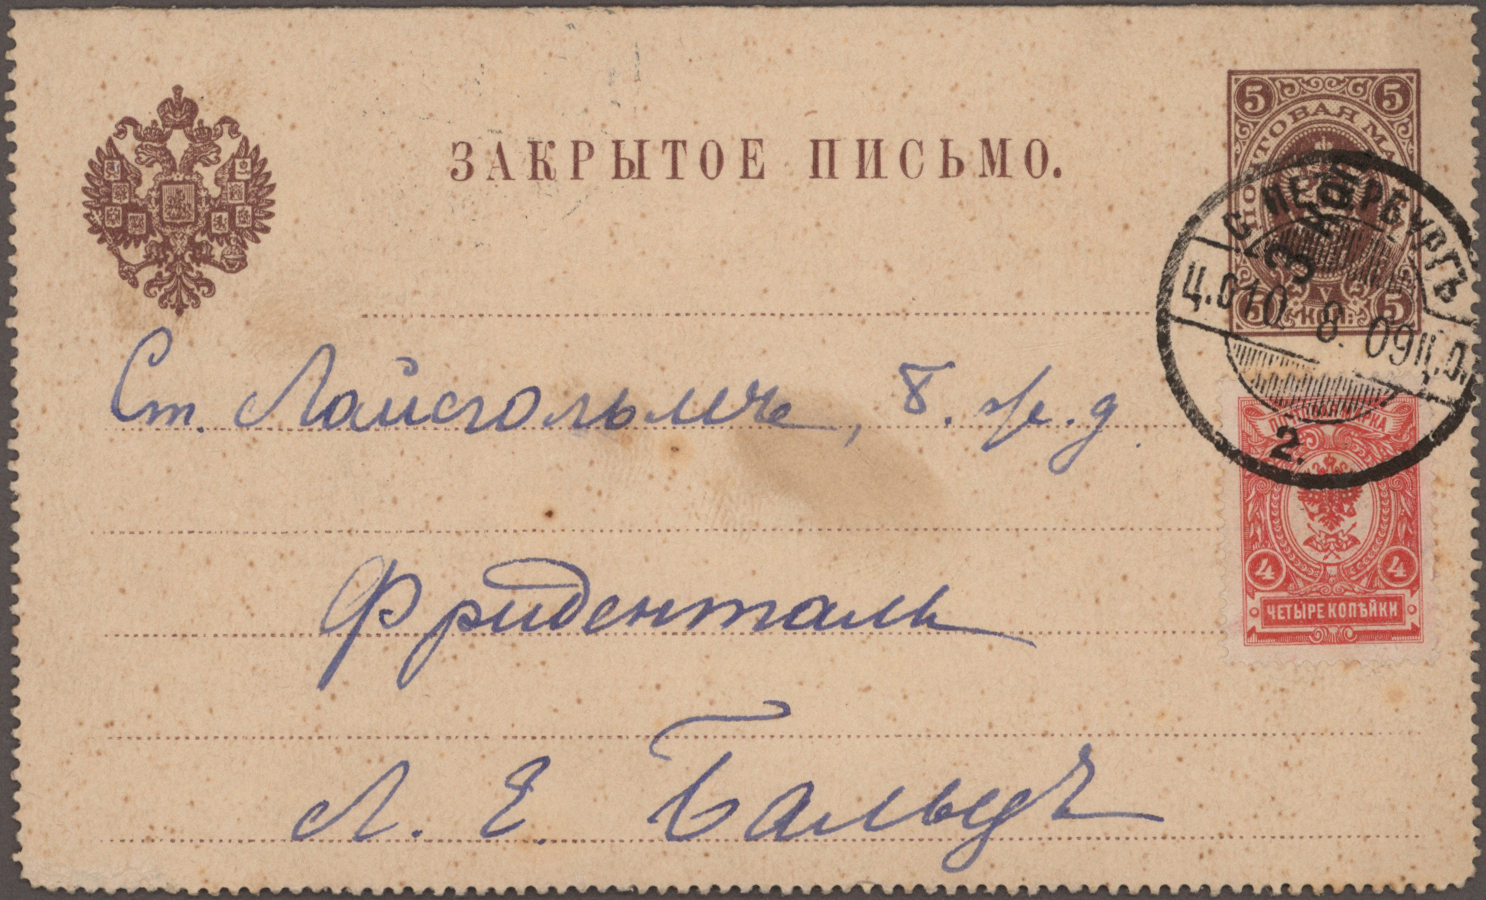 ЗАКРЫТОЕ ПИСЬМО.
5 ПОЧТОВАЯ МА 5
3 коп
С. ПЕТЕРБУРГЪ
Ц.О 10. 8. 09 Ц.О.
5 КОП: 5
2.
Ст. Лайсгольмъ, б. ж. д.
ПОЧТОВАЯ МАРКА
4 4
ЧЕТЫРЕ КОПѢЙКИ
Фриденталь
Л. Е. Бальцъ